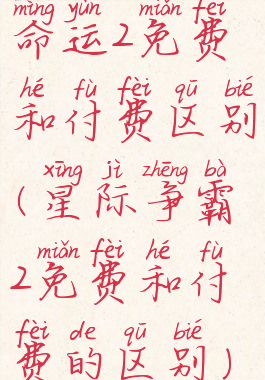 mìng yùn miǎn fèi
命运2免费
hé fù fèi qū bié
和付费区别
xīng jì zhēng bà
(星际争霸
miǎn fèi hé fù
2免费和付
fèi de qū bié
费的区别)